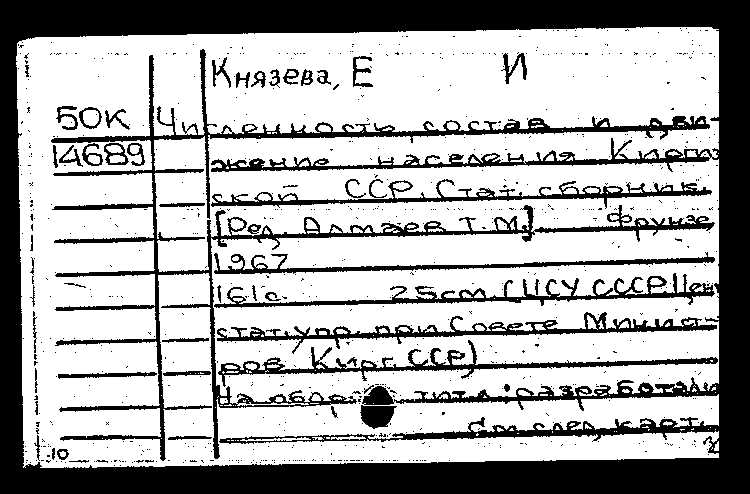 Князева, Е И
50К Численность, состав и дви-
14689 жение населения Киргиз
ской ССР. Стат. сборник.
[Ред. Алтаев Т.М.] Фрунзе,
1967
161с. 25см. (ЦСУ СССР. Цен
стат. упр. при Совете Минист-
ров Кирг. ССР)
На оборо титл.: разработали
См. след. карт.
10